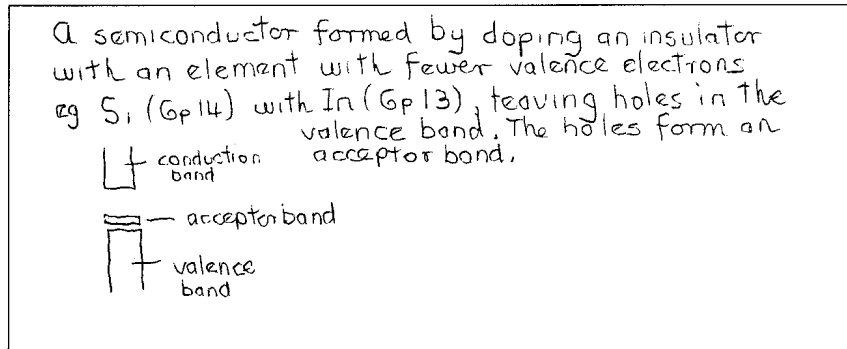 a semiconductor formed by doping an insulator
with an element with fewer valence electrons
eg Si (Gp14) with In (Gp13), leaving holes in the
valence band. The holes form an
acceptor band.
conduction
band
acceptor band
valence
band